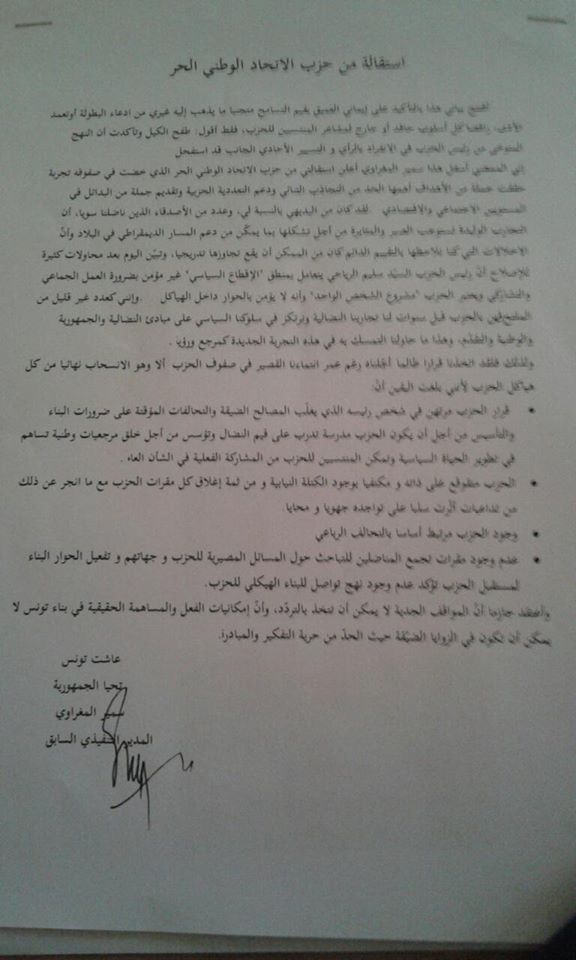 استقالة من حزب الاتحاد الوطني الحر
أفتتح بياني هذا بالتأكيد على إيماني العميق بقيم التسامح متجنبا ما يذهب إليه غيري من ادعاء البطولة أو تعمد
رافضا كل أسلوب جاف أو جارح لمشاعر المنتسبين للحزب، فقط أقول: طفح الكيل وتأكدت أن النهج
المتوخى من رئيس الحزب في الانفراد بالرأي و التسيير الأحادي الجانب قد استفحل
هذا سمير المغراوي أعلن استقالتي من حزب الاتحاد الوطني الحر الذي خضت في صفوفه تجربة
جملة من الأهداف أهمها الحد من التجاذب الثنائي ودعم التعددية الحزبية وتقديم جملة من البدائل في
المستويين الاجتماعي والاقتصادي . لقد كان من البديهي بالنسبة لي، وعدد من الأصدقاء الذين ناضلنا سويا، أن
التجارب الوليدة تستوجب الصبر والمثابرة من أجل تشكلها بما يمكّن من دعم المسار الديمقراطي في البلاد وأنّ
الاخلالات التي كنا نلاحظها بالتقييم الدائم كان من الممكن أن يقع تجاوزها تدريجيا، وتبيّن اليوم بعد محاولات كثيرة
للإصلاح أنّ رئيس الحزب السيّد سليم الرياحي يتعامل بمنطق "الإقطاع السياسي" غير مؤمن بضرورة العمل الجماعي
والتشاركي ويعتبر الحزب "مشروع الشخص الواحد" وأنه لا يؤمن بالحوار داخل الهياكل . وإنني كعدد غير قليل من
الملتحقين بالحزب قبل سنوات لنا تجاربنا النضالية ونرتكز في سلوكنا السياسي على مبادئ النضالية والجمهورية
والوطنية والتقدم، وهذا ما حاولنا التمسك به في هذه التجربة الجديدة كمرجع ورؤيا.
ولذلك فلقد اتخذنا قرارا طالما أجلناه رغم عمر انتماءنا القصير في صفوف الحزب ألا وهو الانسحاب نهائيا من كل
هياكل الحزب لأنني بلغت اليقين أنّ:
• قرار الحزب مرتهن في شخص رئيسه الذي يغلّب المصالح الضيقة والتحالفات المؤقتة على ضرورات البناء
والتأسيس من أجل أن يكون الحزب مدرسة تدرب على قيم النضال وتؤسس من أجل خلق مرجعيات وطنية تساهم
في تطوير الحياة السياسية وتمكن المنتسبين للحزب من المشاركة الفعلية في الشأن العام .
• الحزب متقوقع على ذاته و مكتفيا بوجود الكتلة النيابية و من ثمة إغلاق كل مقرات الحزب مع ما انجر عن ذلك
من تداعيات أثّرت سلبا على تواجده جهويا و محليا.
• وجود الحزب مرتبط أساسا بالتحالف الرباعي
• عدم وجود مقرات تجمع المناضلين للتباحث حول المسائل المصيرية للحزب و جهاتهم و تفعيل الحوار البناء
لمستقبل الحزب تؤكد عدم وجود نهج تواصل للبناء الهيكلي للحزب.
وأعتقد جازما أنّ المواقف الجدية لا يمكن أن تتخذ بالتردّد، وأنّ إمكانيات الفعل والمساهمة الحقيقية في بناء تونس لا
يمكن أن تكون في الزوايا الضيّقة حيث الحدّ من حرية التفكير والمبادرة.
عاشت تونس
تحيا الجمهورية
سمير المغراوي
المدير التنفيذي السابق